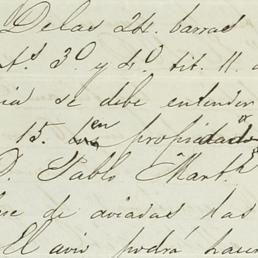 De las 24. barras
ts 3º y 4º tit. 11.
ia se debe entender
15. en propiedad
D. Pablo Marth
se de aviadas las
El avio podrá hacer